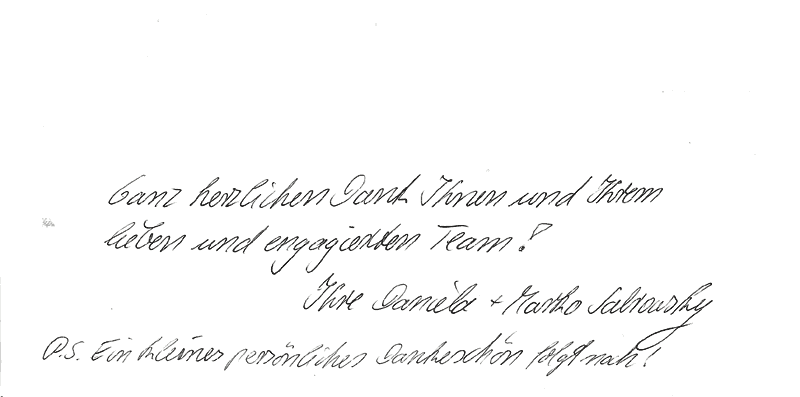 Ganz herzlichen Dank Ihnen und Ihrem
lieben und engagierten Team!
Ihre Daniela + Marko
P.S. Ein kleines persönliches Dankeschön folgt nach!